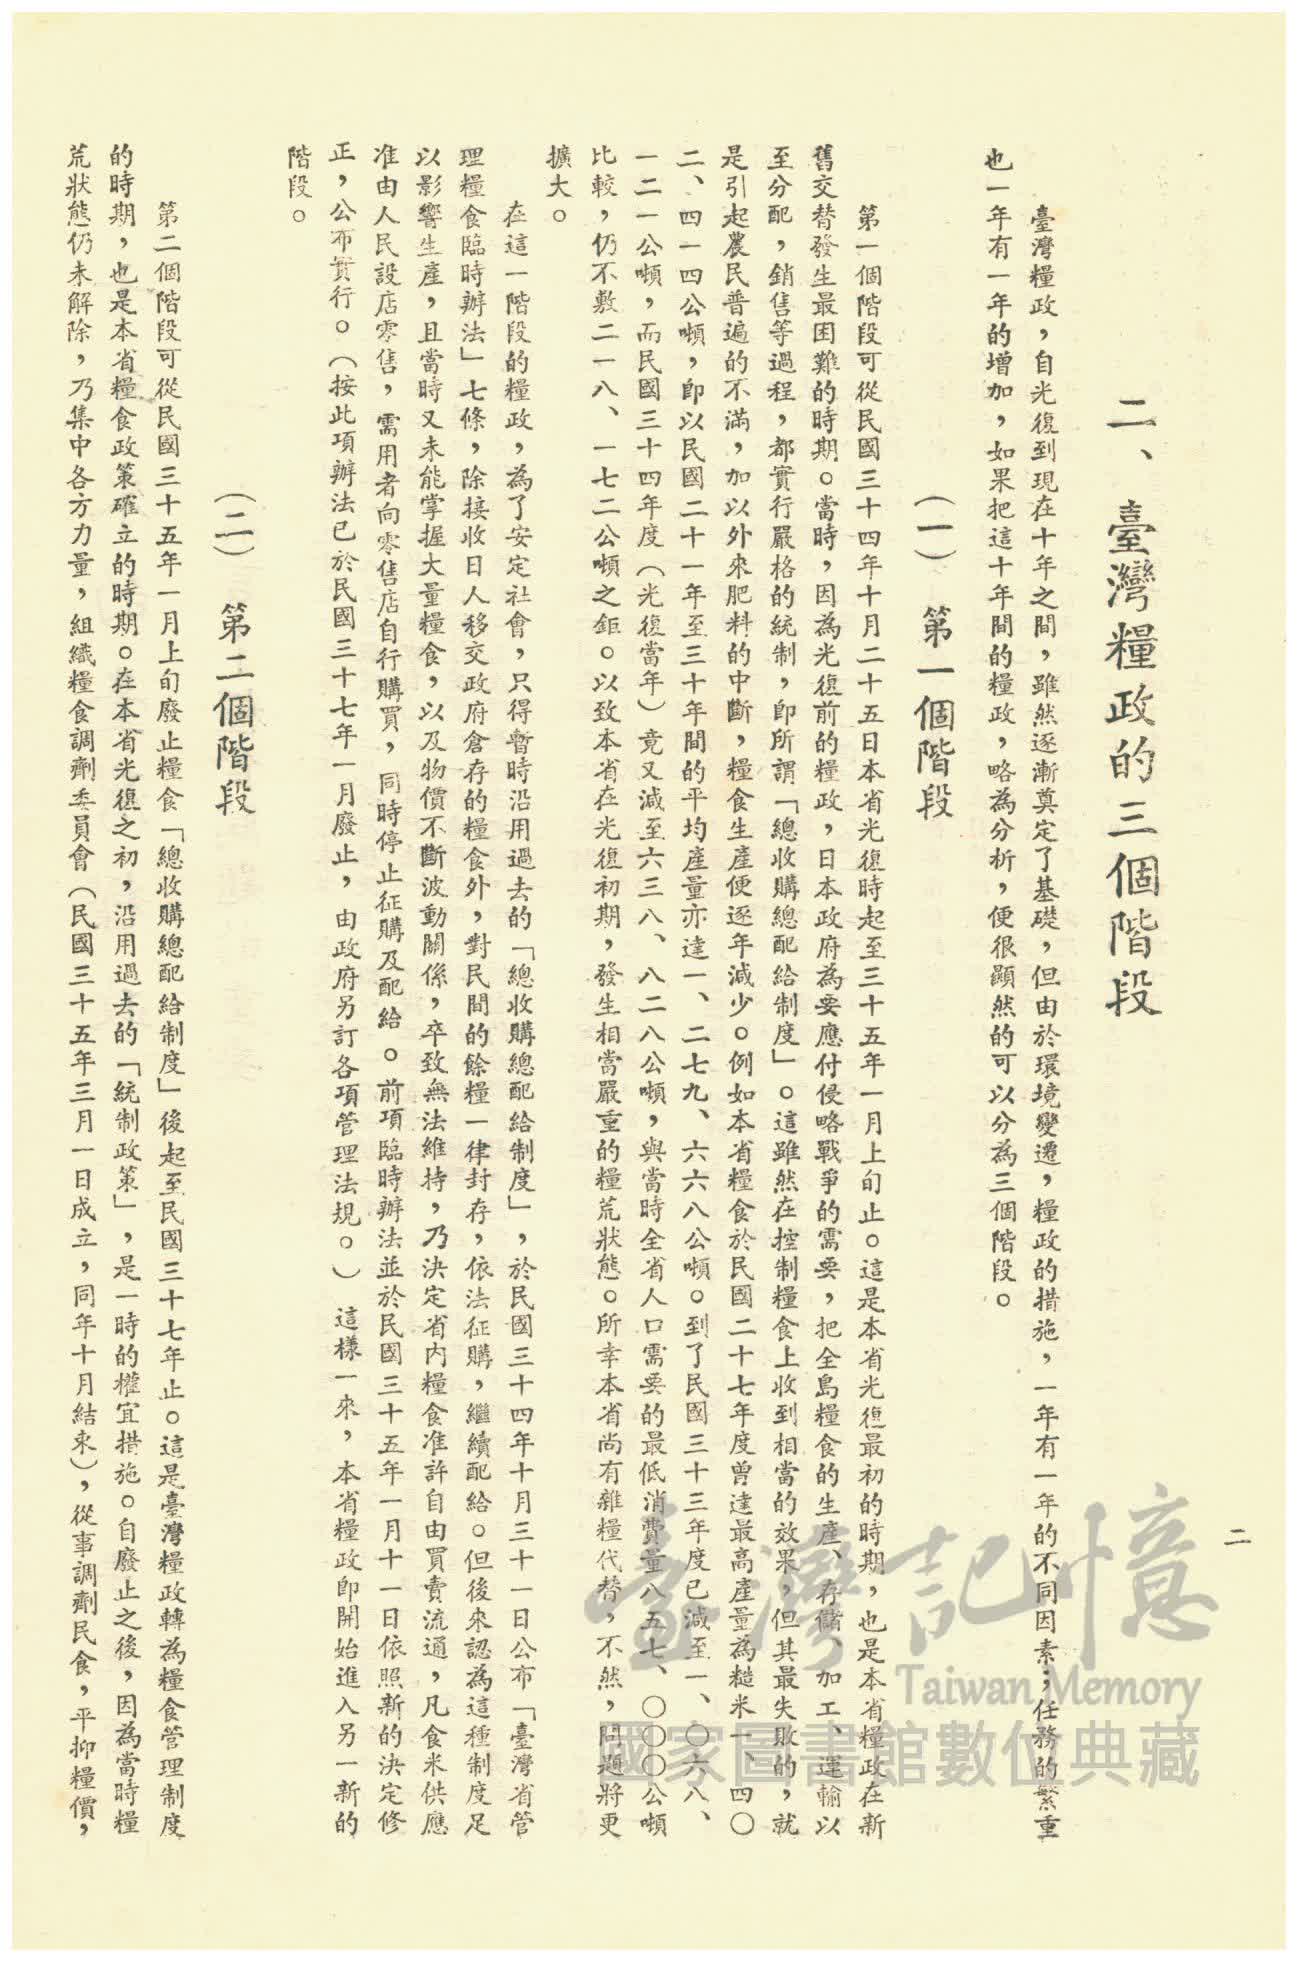 二
二、臺灣糧政的三個階段
臺灣糧政，自光復到現在十年之間，雖然逐漸奠定了基礎，但由於環境變遷，糧政的措施，一年有一年的不同因素；任務的繁重
也一年有一年的增加，如果把這十年間的糧政，略為分析，便很顯然的可以分為三個階段。
（一）　第一個階段
第一個階段可從民國三十四年十月二十五日本省光復時起至三十五年一月上旬止。這是本省光復最初的時期，也是本省糧政在新
舊交替發生最困難的時期。當時，因為光復前的糧政，日本政府為要應付侵略戰爭的需要，把全島糧食的生產、存儲、加工、運輸以
至分配，銷售等過程，都實行嚴格的統制，即所謂「總收購總配給制度」。這雖然在控制糧食上收到相當的效果，但其最失敗的，就
是引起農民普遍的不滿，加以外來肥料的中斷，糧食生產便逐年減少。例如本省糧食於民國二十七年度曾達最高產量為糙米一、四〇
二、四一四公噸，即以民國二十一年至三十年間的平均產量亦達一、二七九、六六八公噸。到了民國三十三年度已減至一、〇六八、
一二一公噸，而民國三十四年度（光復當年）竟又減至六三八、八二八公噸，與當時全省人口需要的最低消費量八五七、〇〇〇公噸
比較，仍不敷二一八、一七二公噸之鉅。以致本省在光復初期，發生相當嚴重的糧荒狀態。所幸本省尚有雜糧代替，不然，問題將更
擴大。
在這一階段的糧政，為了安定社會，只得暫時沿用過去的「總收購總配給制度」，於民國三十四年十月三十一日公布「臺灣省管
理糧食臨時辦法」七條，除接收日人移交政府倉存的糧食外，對民間的餘糧一律封存，依法征購，繼續配給。但後來認為這種制度足
以影響生產，且當時又未能掌握大量糧食，以及物價不斷波動關係，卒致無法維持，乃決定省內糧食准許自由買賣流通，凡食米供應
准由人民設店零售，需用者向零售店自行購買，同時停止征購及配給。前項臨時辦法並於民國三十五年一月十一日依照新的決定修
正，公布實行。（按此項辦法已於民國三十七年一月廢止，由政府另訂各項管理法規。）這樣一來，本省糧政即開始進入另一新的
階段。
（二）　第二個階段
第二個階段可從民國三十五年一月上旬廢止糧食「總收購總配給制度」後起至民國三十七年止。這是臺灣糧政轉為糧食管理制度
的時期，也是本省糧食政策確立的時期。在本省光復之初，沿用過去的「統制政策」，是一時的權宜措施。自廢止之後，因為當時糧
荒狀態仍未解除，乃集中各方力量，組織糧食調劑委員會（民國三十五年三月一日成立，同年十月結束），從事調劑民食，平抑糧價，
臺灣記憶
Taiwan Memory
國家圖書館數位典藏